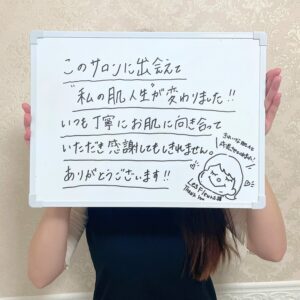 このサロンに出会えて
"私の肌人生"が変わりました!!
いつも丁寧にお肌に向き合って
いただき感謝してもしきれません。
ありがとうございます!!
Thank you